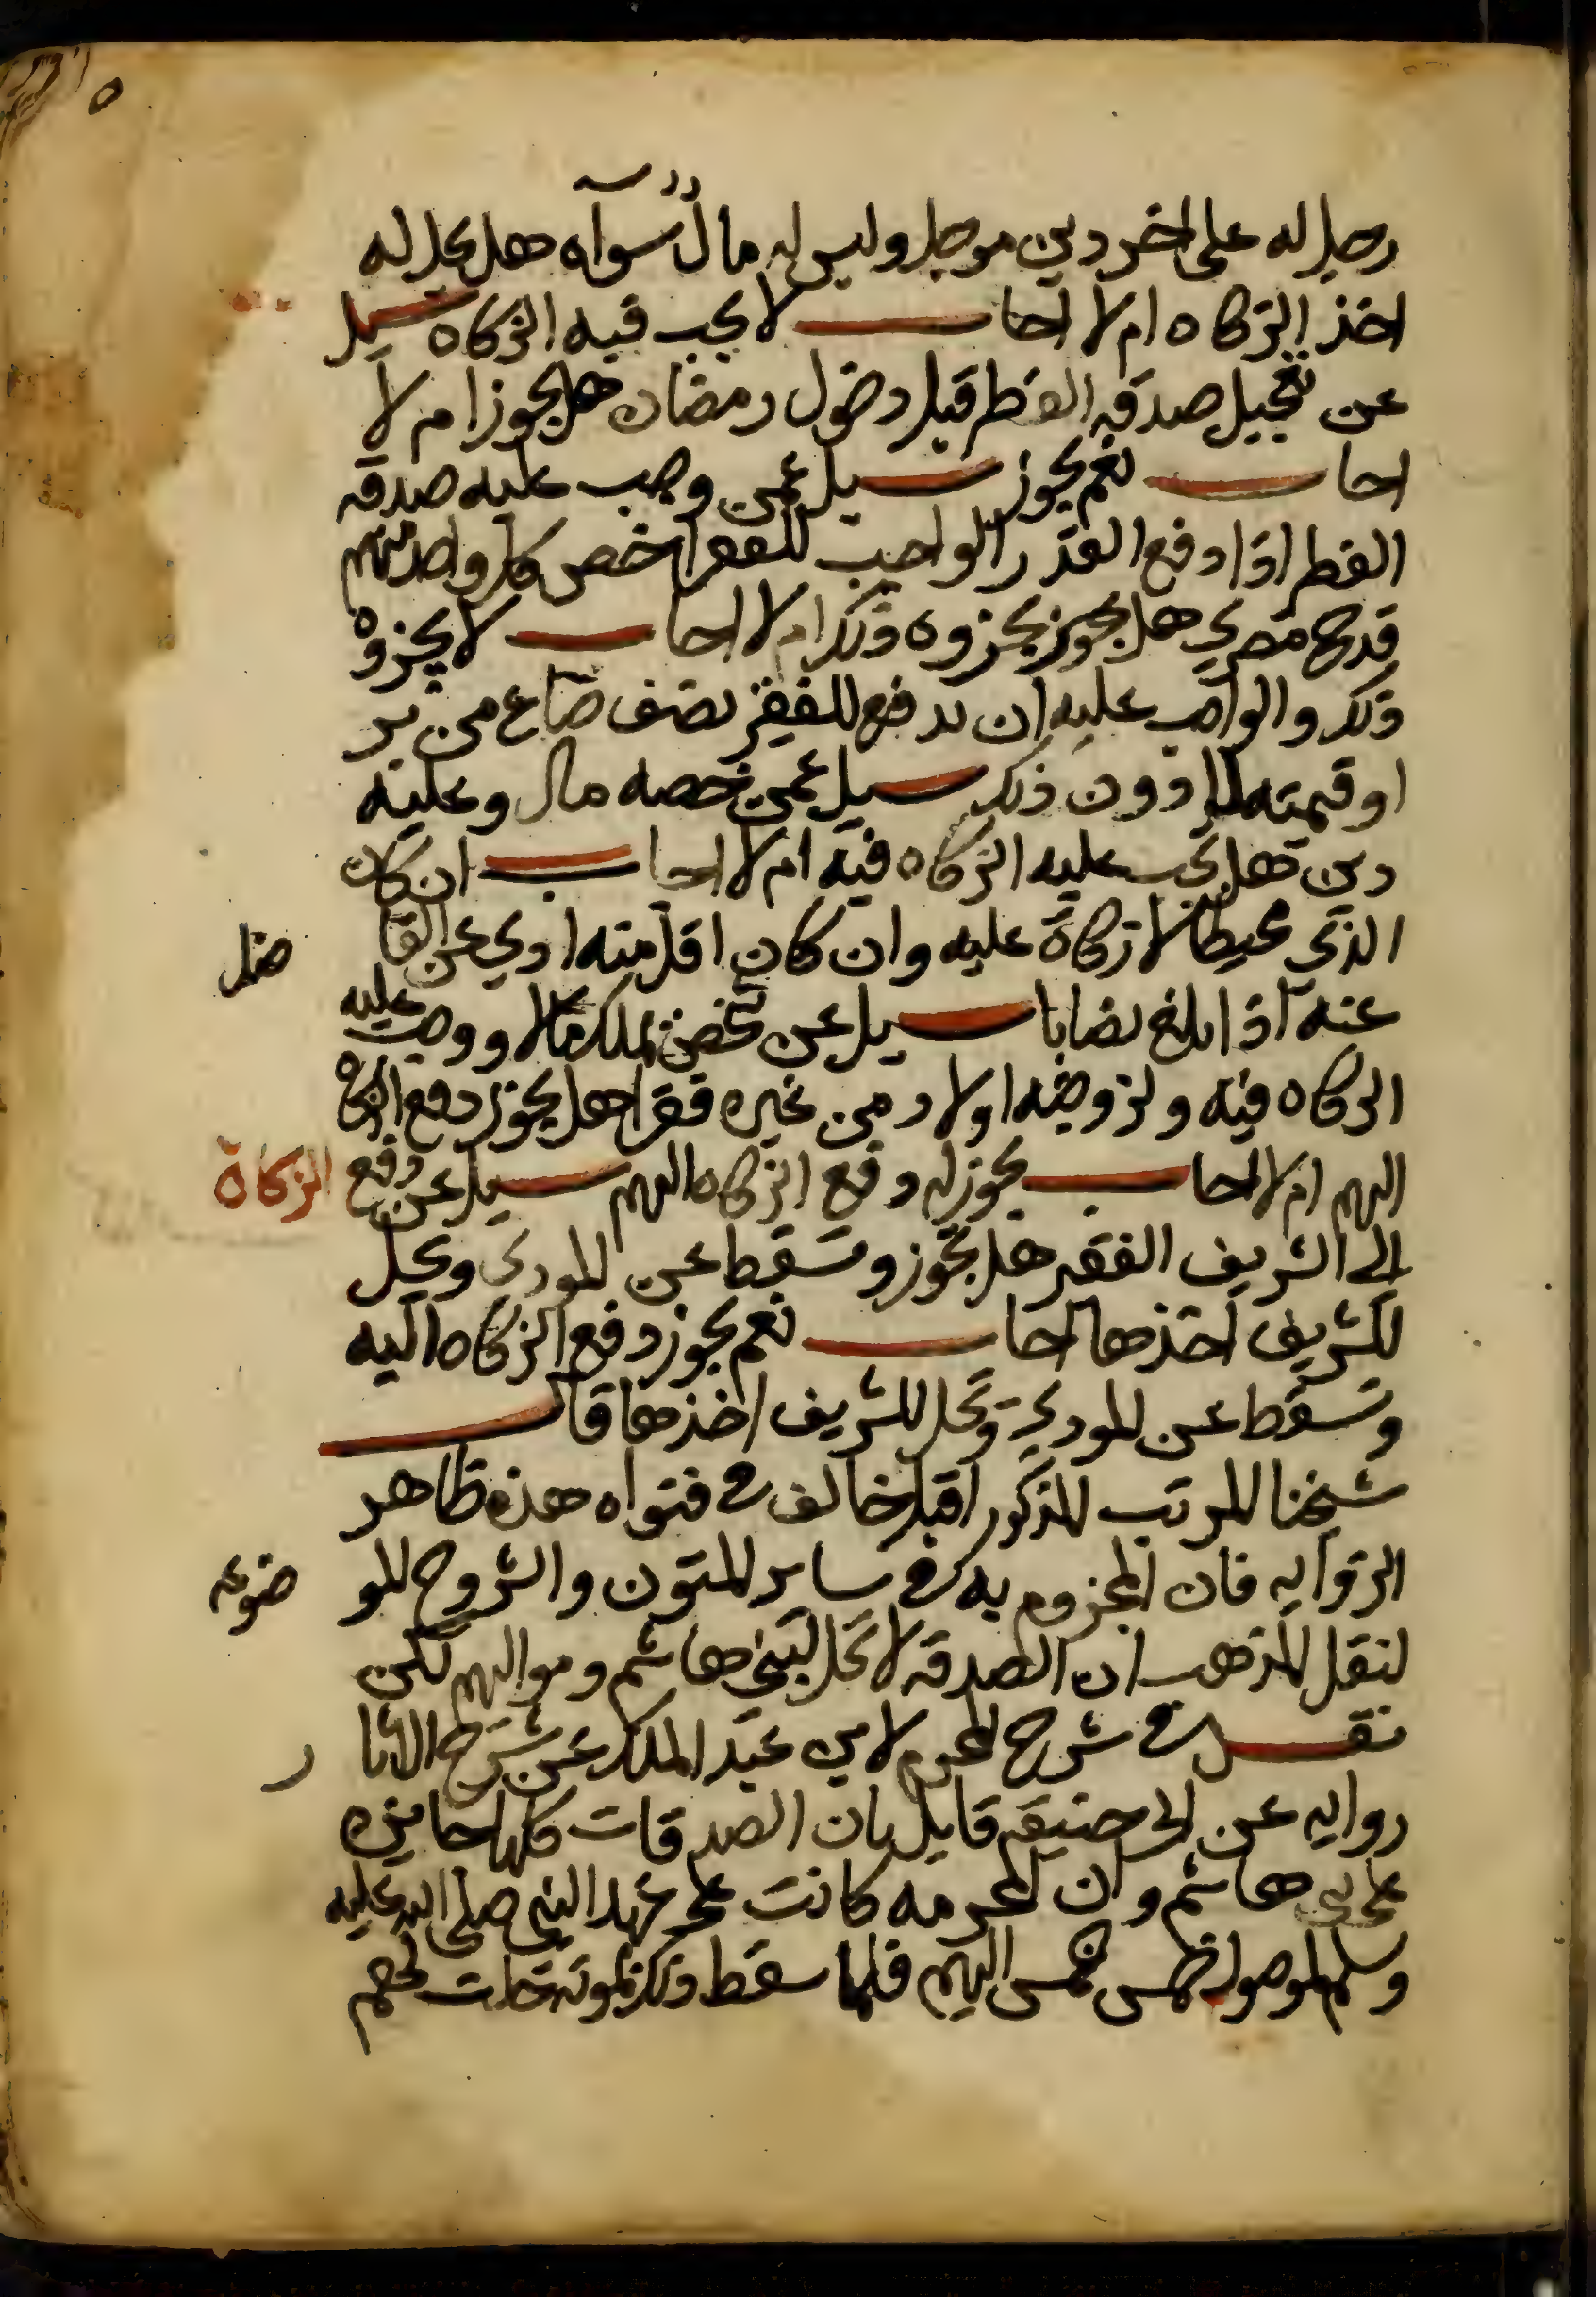 ٥
رجل له على اخر دين موجل وليس له مال سواه هل يحل له
اخذ الزكاه ام لا اجاب لا يجب فيه الزكاه سيل
عن تعجيل صدقه الفطر قبل دخول رمضان هل يجوز ام لا
اجاب نعم يجوز سيل عمن وجب عليه صدقه
الفطر اذا دفع القدر الواجب للفقرا خص كل واحد منهم
قدح مصري هل يجوز يجزوه ذلك ام لا اجاب لا يجزوه
ذلك والواجب عليه ان يدفع للفقير نصف صاع من بر
او قيمته لا دون ذلك سيل عمن خصه مال وعليه
دين هل يجب عليه الزكاه فيه ام لا اجاب ان كان
الذي محيطا لا زكاة عليه وان كان اقل منه ادي عن الفا
ضل
عنه اذا بلغ نصابا سيل عن شخص ملك مالا ووجبت عليه
الزكاه فيه ولزوجته اولاد من غيره فقرا هل يجوز دفع الزكاه
اليهم ام لا اجاب يجوز له دفع الزكاه اليهم سيل عن دفع الزكاة
الى الشريف الفقير هل تجوز وتسقط عن المودي ويحل
للشريف اخذها اجاب نعم يجوز دفع الزكاه اليه
وتسقط عن المودي وتحل للشريف اخذها قال
شيخنا المرتب المذكور اقبل خالف في فتواه هذه ظاهر
الروايه فان المجزوم به في ساير المتون والشروح المو
ضوعه
لنقل المذهب ان الصدقه لا تحل لبني هاشم ومواليهم لكن
نقل في شرح المجمع لابن عبد الملك عن شرح الاثا
ر
روايه عن ابي حنيفه قايل بان الصدقات كلها جايزه
على بني هاشم وان الحرمه كانت على عهد النبي صلى الله عليه
وسلم لوصول خمس الخمس اليهم فلما سقط ذلك بموته حلت لهم